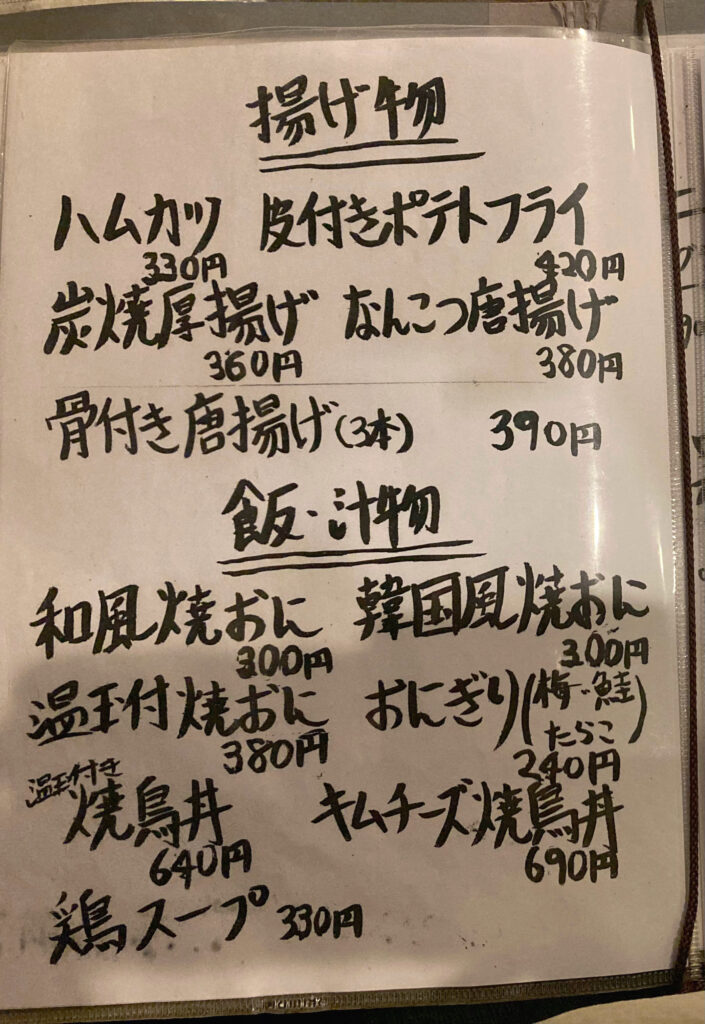 揚げ物
ハムカツ 皮付きポテトフライ
330円 420円
炭焼厚揚げ なんこつ唐揚げ
360円 380円
骨付き唐揚げ(3本) 390円
飯・汁物
和風焼おに 韓国風焼おに
300円 300円
温玉付焼おに おにぎり(梅・鮭
たらこ)
380円 240円
温玉付き
焼鳥丼 キムチーズ焼鳥丼
640円 690円
鶏スープ 330円